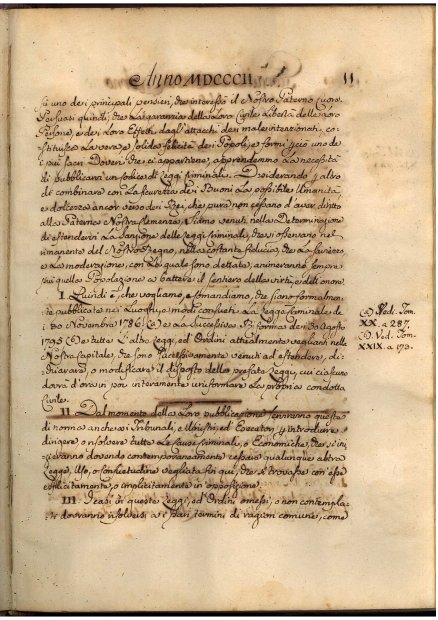 Anno MDCCCII.
11
fù uno dei principali pensieri, che interessò il Nostro Paterno Cuore.
Persuasi quindi, che la garanzia della Loro Civile Libertà delle Loro
Persone, e dei Loro Effetti, dagl'attacchi dei malintenzionati, co-
stituisce la vera e solida felicità dei Popoli, e formi perciò uno de
i più sacri Doveri che ci appartiene, apprendemmo la necessità
di pubblicarvi un Codice di Leggi Criminali. Desiderando però altro
di combinare con la sicurezza dei Buoni la possibile Umanità,
e dolcezza ancor verso dei Rei, che pure non cessano d'aver diritto
alla Paterna Nostra Clemenza, Siamo venuti nella Determinazione
di estendervi la Sanzione delle Leggi Criminali, che si osservano nel
rimanente del Nostro Regno, nella costante fiducia, che la saviezza
e la moderazione, con la quale sono dettate, animeranno sempre
più quella Popolazione a battere il sentiero della virtù, e dell'onore.
I. Quindi è, che vogliamo, e comandiamo, che siano formalmen-
te pubblicate nei Luoghi, e modi consueti la Legge Criminale de
i 30 Novembre 1786 (A) e la successiva Riforma dei 30 Agosto
1795 (B) e tutte l'altre Leggi, ed Ordini attualmente veglianti nella
Nostra Capitale, che sono successivamente venuti ad estendere, di-
chiarare, o modificare il disposto della prefata Legge, cui ciascuno
dovrà d'ora in poi interamente uniformare la propria condotta
Civile.
(A) Ved. Tom.
XX. a 287.
(B) Ved. Tom.
XXIX. a 173.
II. Dal momento della Loro pubblicazione serviranno queste
di norma anche ai Tribunali, e Ministri, ed Esecutori, per introdurre,
dirigere, o risolvere tutte le Cause Criminali, o Economiche, che si ini-
zieranno dovendo contemporaneamente cessare qualunque altra
Legge, Uso, o Consuetudine vegliata fin qui, che si trovasse con esse
esplicitamente, o implicitamente in opposizione.
III. I casi in queste Leggi, ed Ordini omessi, o non contempla-
ti dovranno risolversi ai termini di ragion comune, come